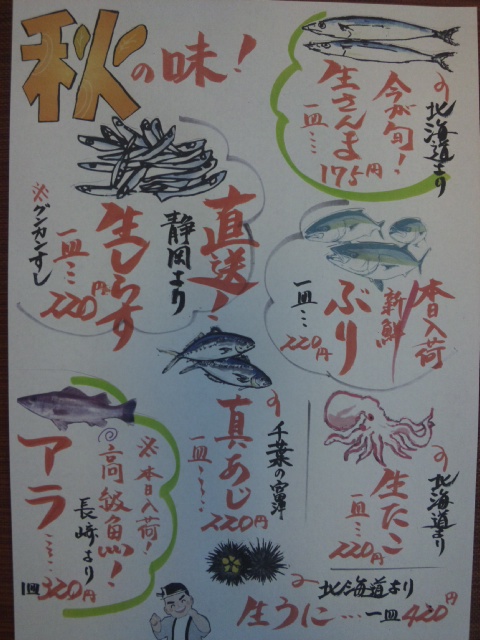 秋の味!
北海道より
今が旬!
生さんま
一皿…175円
直送!
静岡より
生しらす
一皿…220円
※グンカンすし
本日入荷
新鮮
ぶり
一皿…220円
千葉の富津
真あじ
一皿…220円
北海道より
生たこ
一皿…220円
※本日入荷!
高級魚!
長崎より
アラ…
1皿320円
北海道より
生うに…一皿420円